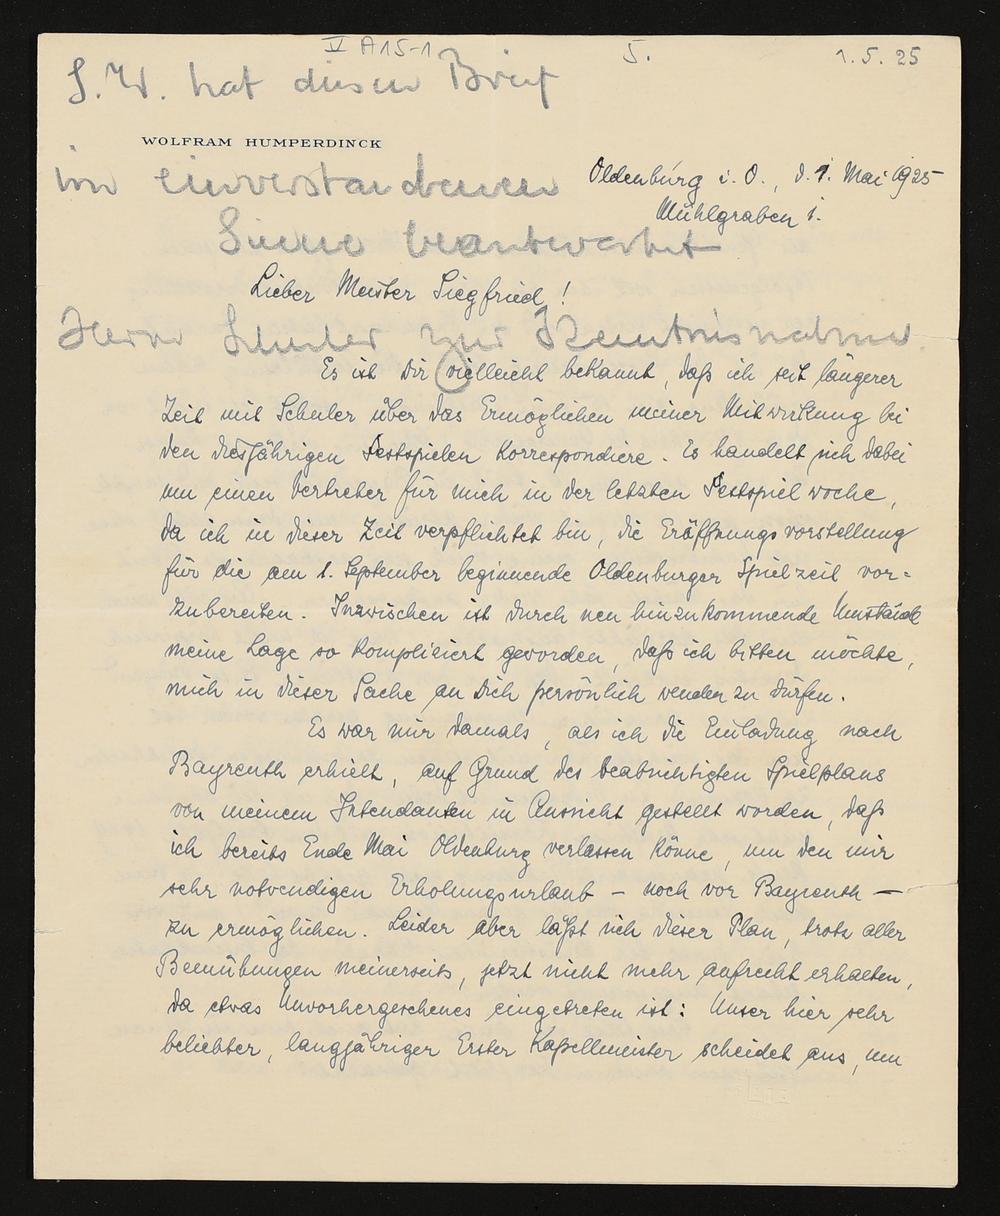 V A 15-1 5. 1.5.25
S. W. hat diesen Brief
WOLFRAM HUMPERDINCK
im einverstandenen
Oldenburg i. O., d. 1. Mai 1925
Mühlgraben 1.
Sinne beantwortet
Lieber Meister Siegfried!
Herrn Schuler zur Kenntnisnahme.
Es ist Dir vielleicht bekannt, daß ich seit längerer
Zeit mit Schuler über das Ermöglichen meiner Mitwirkung bei
den diesjährigen Festspielen korrespondiere. Es handelt sich dabei
um einen Vertreter für mich in der letzten Festspielwoche,
da ich in dieser Zeit verpflichtet bin, die Eröffnungsvorstellung
für die am 1. September beginnende Oldenburger Spielzeit vor=
zubereiten. Inzwischen ist durch neu hinzukommende Umstände
meine Lage so kompliziert geworden, daß ich bitten möchte,
mich in dieser Sache an Dich persönlich wenden zu dürfen.
Es war mir damals, als ich die Einladung nach
Bayreuth erhielt, auf Grund des beabsichtigten Spielplans
von meinem Intendanten in Aussicht gestellt worden, daß
ich bereits Ende Mai Oldenburg verlassen könne, um den mir
sehr notwendigen Erholungsurlaub – noch vor Bayreuth –
zu ermöglichen. Leider aber läßt sich dieser Plan, trotz aller
Bemühungen meinerseits, jetzt nicht mehr aufrecht erhalten,
da etwas Unvorhergesehenes eingetreten ist: Unser hier sehr
beliebter, langjähriger Erster Kapellmeister scheidet aus, um